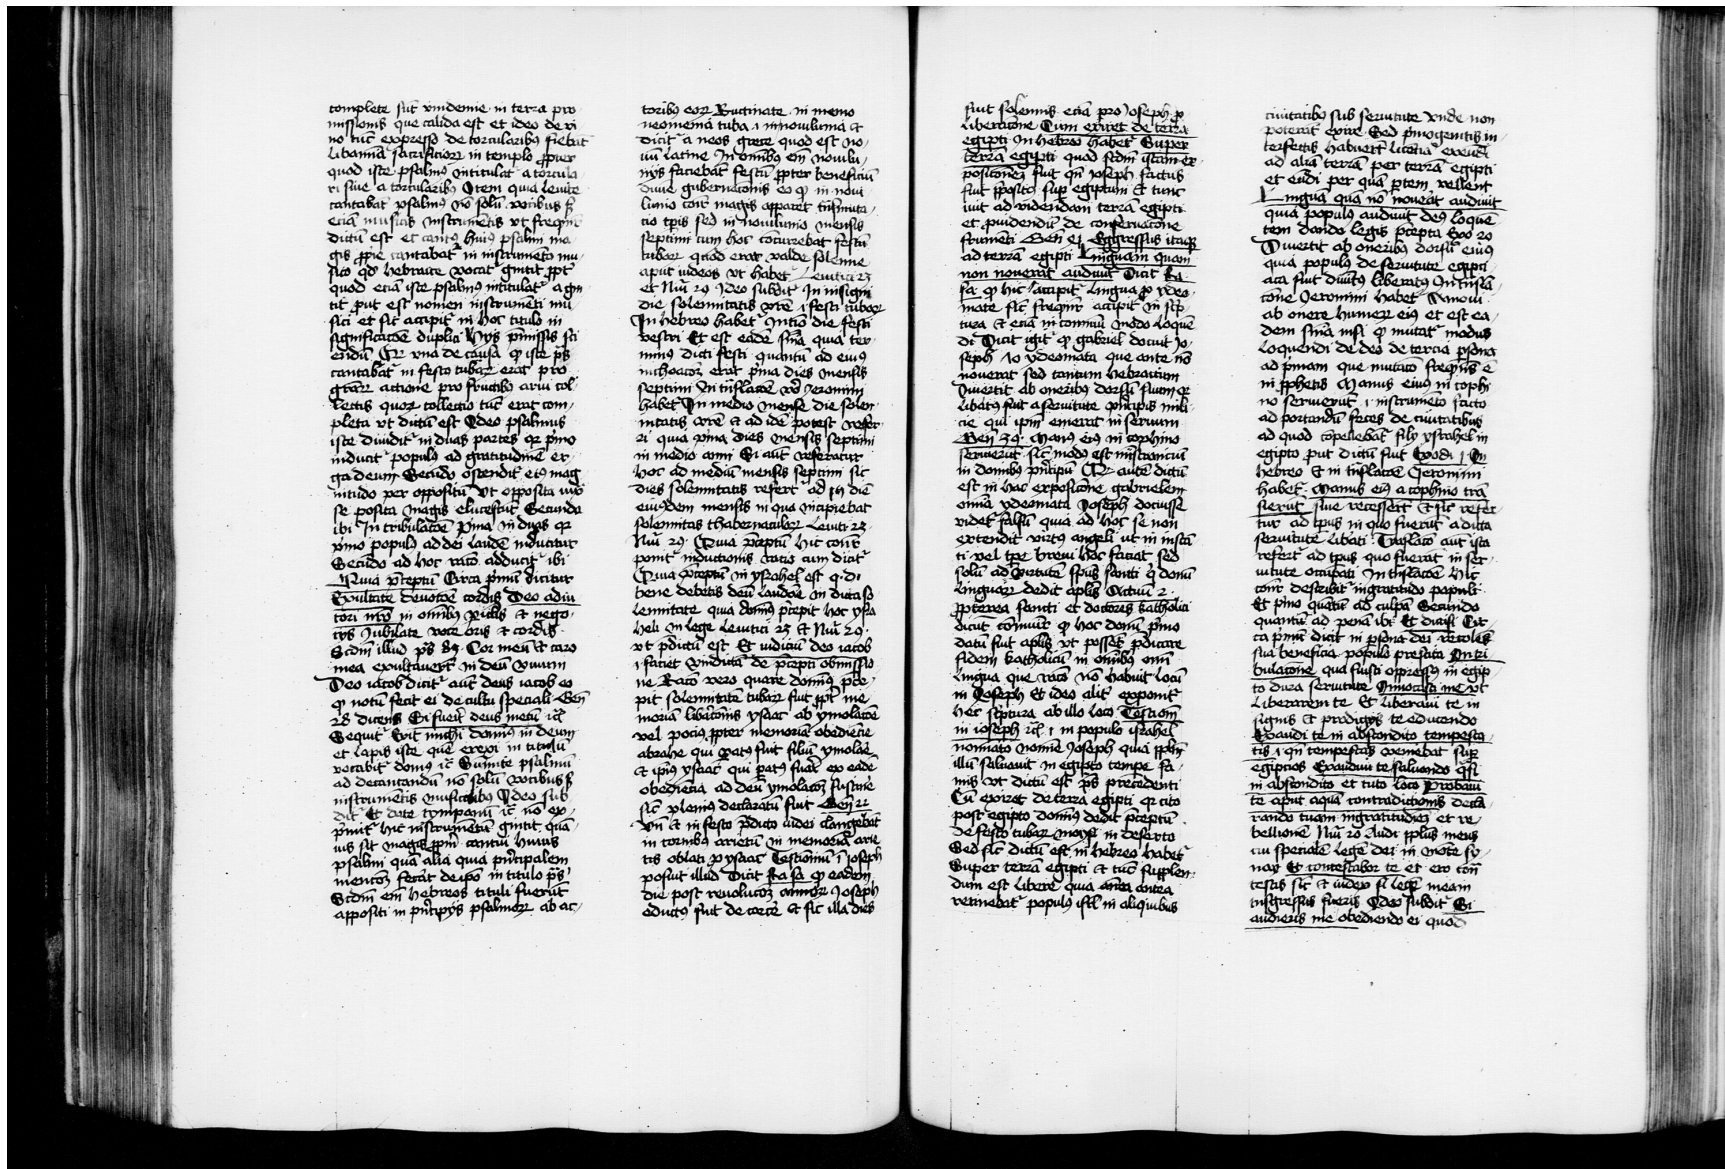 complete sut vindemie in terra pro
missionis que calida est et ideo de vi
no tuc expresso de torcularibus fiebat
libamina sacrificior in templo propter
quod iste psalmus intitulat a torcula
ri sive a torcularibus Item quia levite
cantabat psalmus no solu vocibus s
etia musicis instrumetis ut frequenter
dictu est et cantus huius psalmi ma
gis proprie cantabat in instrumeto mu
sico quod hebraice vocat gintit propter
quod etia iste psalmus intitulat a gin
tit prout est nomen instrumeti mu
sici et sic accipit in hoc titulo in
significatoe duplici Hys premissis sci
endu Quare una de causa quod iste ps
cantabat in festo tubar erat pro
gratiar actione pro fructibus arui col
lectis quor collectio tuc erat com
pleta ut dictu est Ideo psalmus
iste dividit in duas partes quia primo
inducit populus ad gratitudine er
ga deum Secudo ostendit eius mag
nitudo per oppositu ut opposita iux
se posita magis elucescut Secunda
ibi In tribulatoe Prima in duas quia
primo populus ad dei laude inducitur
Secudo ad hoc ratio adducit ibi
Quia preceptu Circa primu dicitur
Exultate devotoe cordis Deo adiu
tori nro in omibus periculis et nego
cys Iubilate voce oris et cordis
Scdm illud ps 83 Cor meu et caro
mea exultaverut in deu vivum
Deo iacob dicit aut deus iacob eo
quod notu fecit ei de cultu speciali Gen
28 dicens Si fuerit deus mecu etc
Sequit Erit michi dominus in deum
et lapis iste que erexi in titulu
vocabit domus etc Sumite psalmu
ad decantandu no solu vocibus s
instrumetis musicalibus Ideo sub
dit Et date tympanu etc no ex
primit hic instrumetu gintit quam
vis sit magis proprium cantui huius
psalmi qua alia quia principalem
mentoe fecat de ipso in titulo ps
Scdm eni hebreos tituli fuerut
appositi in principys psalmor ab ac
toribus eor Buccinate in meno
neomenia tuba i in novilunia et
dicit a neos grece quod est no
vu latine In omibus eni novilu
nys faciebat festu propter beneficiu
divine gubernationis eo quod in novi
lunio contra magis apparet transmuta
cio tpis sed in novilunio mensis
septimi cum hoc concurrebat festu
tubar quod erat valde solenne
aput iudeos ut habet Levitici 23
et Nu 29 Ideo subdit In insigni
die solennitatis vre i festi tubar
In hebreo habet Initio die festi
vestri Et est eade sententia quia ter
minus dicti festi quantu ad eius
inchoacoe erat prima dies mensis
septimi In translatoe vero Jeronimi
habet In medio mense die solen
nitatis vre et ad ide potest refer
ri quia prima dies mensis septimi
in medio anni Si aut referatur
hoc ad mediu mensis septimi sic
dies solennitatis refert ad 15 die
eiusdem mensis in qua incipiebat
solennitas thabernaculor Leviti 23
Nu 29 Quia preceptu hic contra
ponit inductionis ratio cum dicit
Quia preceptu in ysrahel est q d
bene debetis deu laudae in dicta so
lennitate quia dominus precepit hoc ysra
heli in lege Levitici 23 et Nu 29
ut predictu est Et iudiciu deo iacob
i faciet vindicta de precepti obmissio
ne Ratio vero quare dominus prece
pit solennitate tubar fuit propter me
moria liberacionis ysaac ab ymolacoe
vel pocius propter memoria obediecie
abrahe qui paratus fuit filiu ymolae
et ipius ysaac qui paratus fuerat ex eade
obediecia ad deu ymolacoe sustine
sic plenius declaratu fuit Gen 22
Vn et in festo predicto iudei clangebat
in cornibus arietu in memoria arie
tis oblati pro ysaac Testimoniu i ioseph
posuit illud Dicit Ra Sa quod eadem
die post revolucoe annor Joseph
eductus fuit de carcere et sic illa dies
fuit solennis etia pro Joseph pro
liberacione Cum exiret de terra
egipti In hebreo habet Super
terra egipti quod scdm ista ex
positione fuit qn Joseph factus
fuit preposito super egiptum Et tunc
ivit ad videndam terra egipti
et providendu de conservacione
frumeti Gen 41 Eggressus itaque
ad terra egipti Linguam quam
non noverat audivit Dicit Ra
Sa quod hic accipit lingua pro ydeo
mate sic frequenter accipit in scrip
tura et etia in comuni modo loque
di Dicit igit quod gabriel docuit Jo
seph 70 ydeomata que ante no
noverat sed tantum hebraicum
Divertit ab oneribus dorsu suum quia
liberatus fuit a servitute principis mili
cie qui ipum emerat in servum
Gen 39 Manus eius in cophino
servierut sic modus est ministrancium
in domibus principu Quod aute dictu
est in hac expositione gabrielem
omia ydeomata Joseph docuisse
videt falsu quia ad hoc se non
extendit virtus angeli ut in insta
ti vel tpe brevi hoc faciat sed
solu ad virtute spus sancti qui donu
linguar dedit aplis Actuu 2
Propterea sancti et doctores katholici
dicut comuniter quod hoc donu primo
datu fuit aplis ut possent predicare
fidem katholicu in omibus eni
lingua que ratio no habuit locu
in Joseph Et ideo aliter exponit
hec scriptura ab illo loco Testiom
in ioseph etc i in populo israhel
nominato nomine Joseph quia populu
illu salvavit in egipto tempe fa
mis ut dictu est ps precedenti
Cu exiret de terra egipti quia cito
post egipto dominus dedit preceptu
de festo tubar Moysi in deserto
Sed sic dictu est in hebreo habet
Super terra egipti et tuc supplen
dum est libere quia antea
retinebat populus isrl in aliquibus
civitatibus sub servitute Unde non
poterat exire Sed primogenitis in
terfectis habuerut licetia exeudi
ad alia terra per terra egipti
et eundi per qua partem vellent
Lingua qua no noverat audivit
quia populus audivit deus loque
tem dando legis precepta Exo 20
Divertit ab oneribus dorsu eius
quia populus de servitute egipti
aca fuit divinitus liberatus In transla
cione Jeronimi habet Amovi
ab onere humeru eius et est ea
dem sentencia nisi quod mutat modus
loquendi de deo de tercia persona
ad primam que mutacio frequens e
in prophetis Manus eius in cophi
no servierut i instrumeto facto
ad portandu feces de civitatibus
ad quod copellebat fily ysrahel in
egipto prout dictu fuit Exodi 1 In
hebreo et in translacoe Jeronimi
habet Manus eius a cophino tra
sierut sive recesserut et sic refer
tur ad tpus in quo fuerut a dicta
servitute liberati Traslacio aut ista
refert ad tpus quo fuerat in ser
vitute occupati In tribulacoe Hic
contra describit ingratitudo populi
Et primo quatu ad culpa Secundo
quantu ad pena ibi Et dimisi Cir
ca primu dicit in persona dei recoles
sua beneficia populo prestita In tri
bulacione qua fuisti oppressus in egip
to dura servitute Invocasti me ut
liberarem te Et liberavi te in
signis et prodigys te educendo
Exaudi te in abscondito tempesta
tis i qn tempestas eveniebat super
egipcios Exaudivi te salvando quasi
in abscondito et tuto loco Probavi
te aput aqua contradictionis decla
rando tuam ingratitudine et re
bellione Nu 20 Audi populus meus
cui speciale lege dei in mote sy
nay Et contestabor te et ero con
testis sic et iudex si lege meam
transgressus fueris Ideo subdit Si
audieris me obediendo ei quod